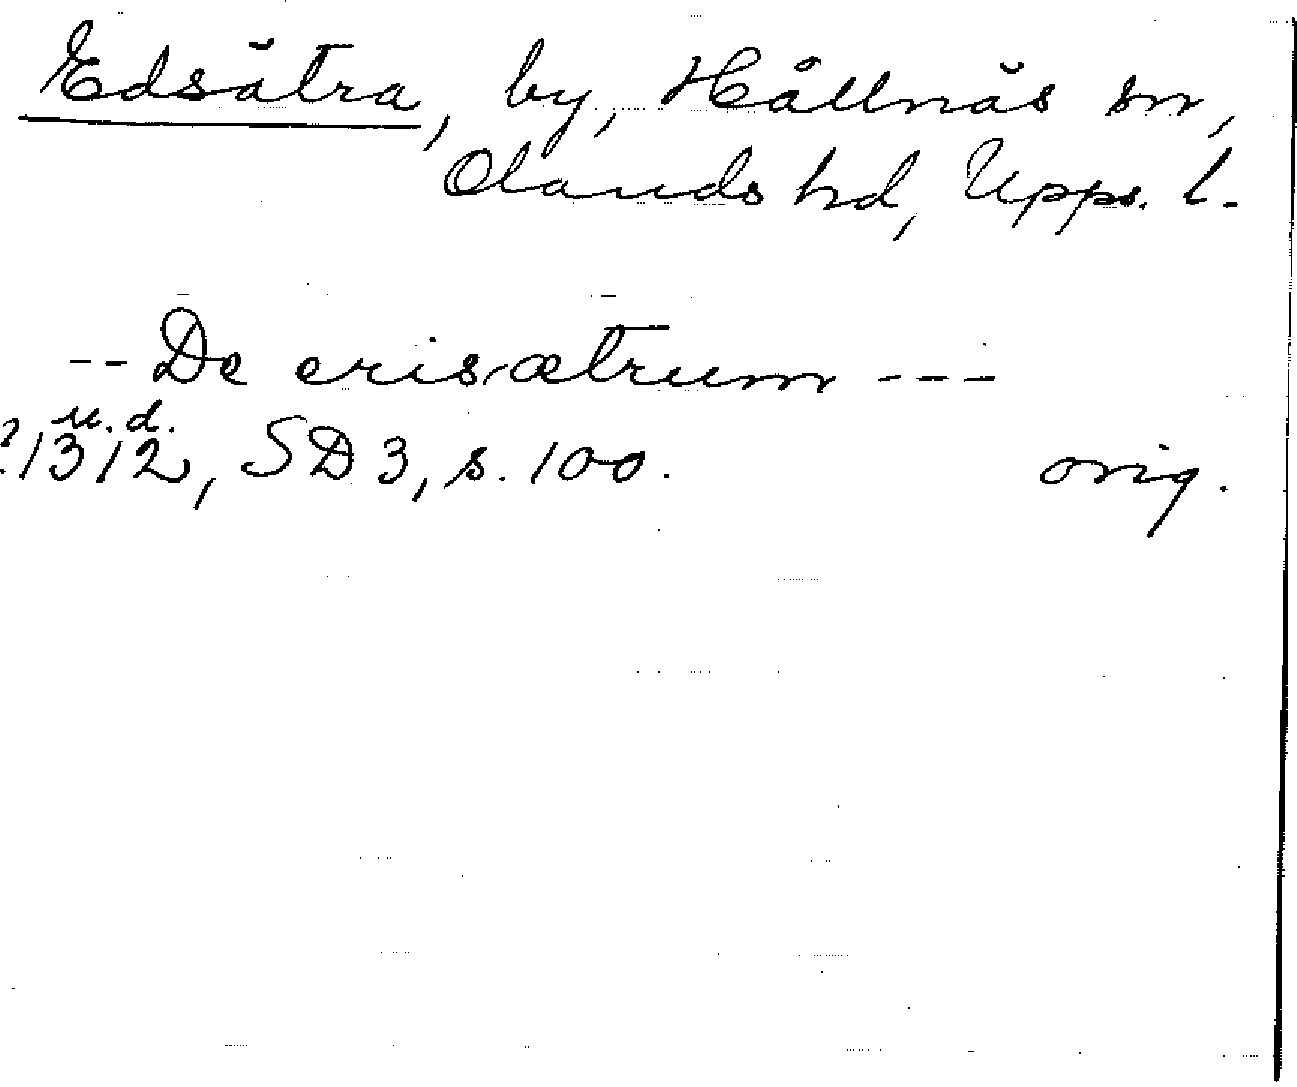 Edsätra, by, Hållnäs sn,
Olands hd, Upps. l.
-- De erisætrum ---
u. d.
?1312, SD 3, s. 100. orig.